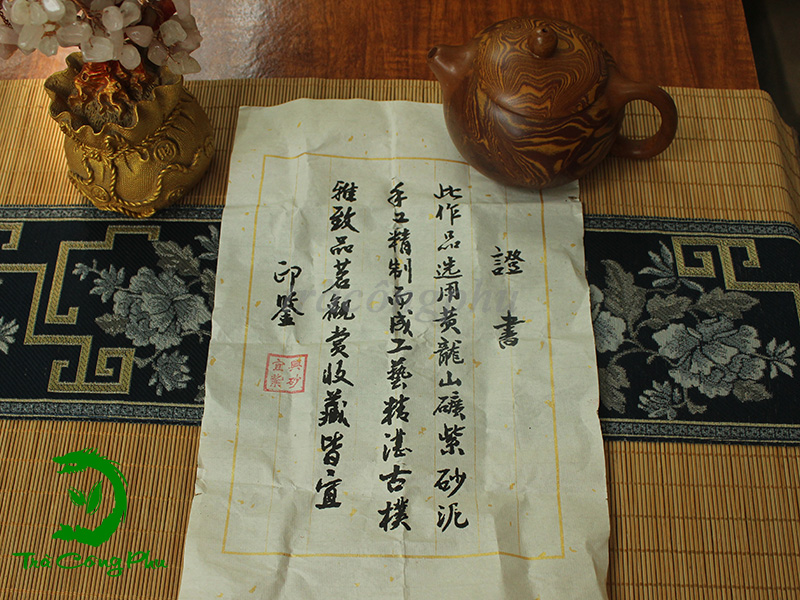 證書
此作品选用黄龍山礦紫砂泥
手工精制而成工藝精湛古樸
雅致品茗觀赏收藏皆宜
印鑒
宜興紫砂
Trà Công Phu